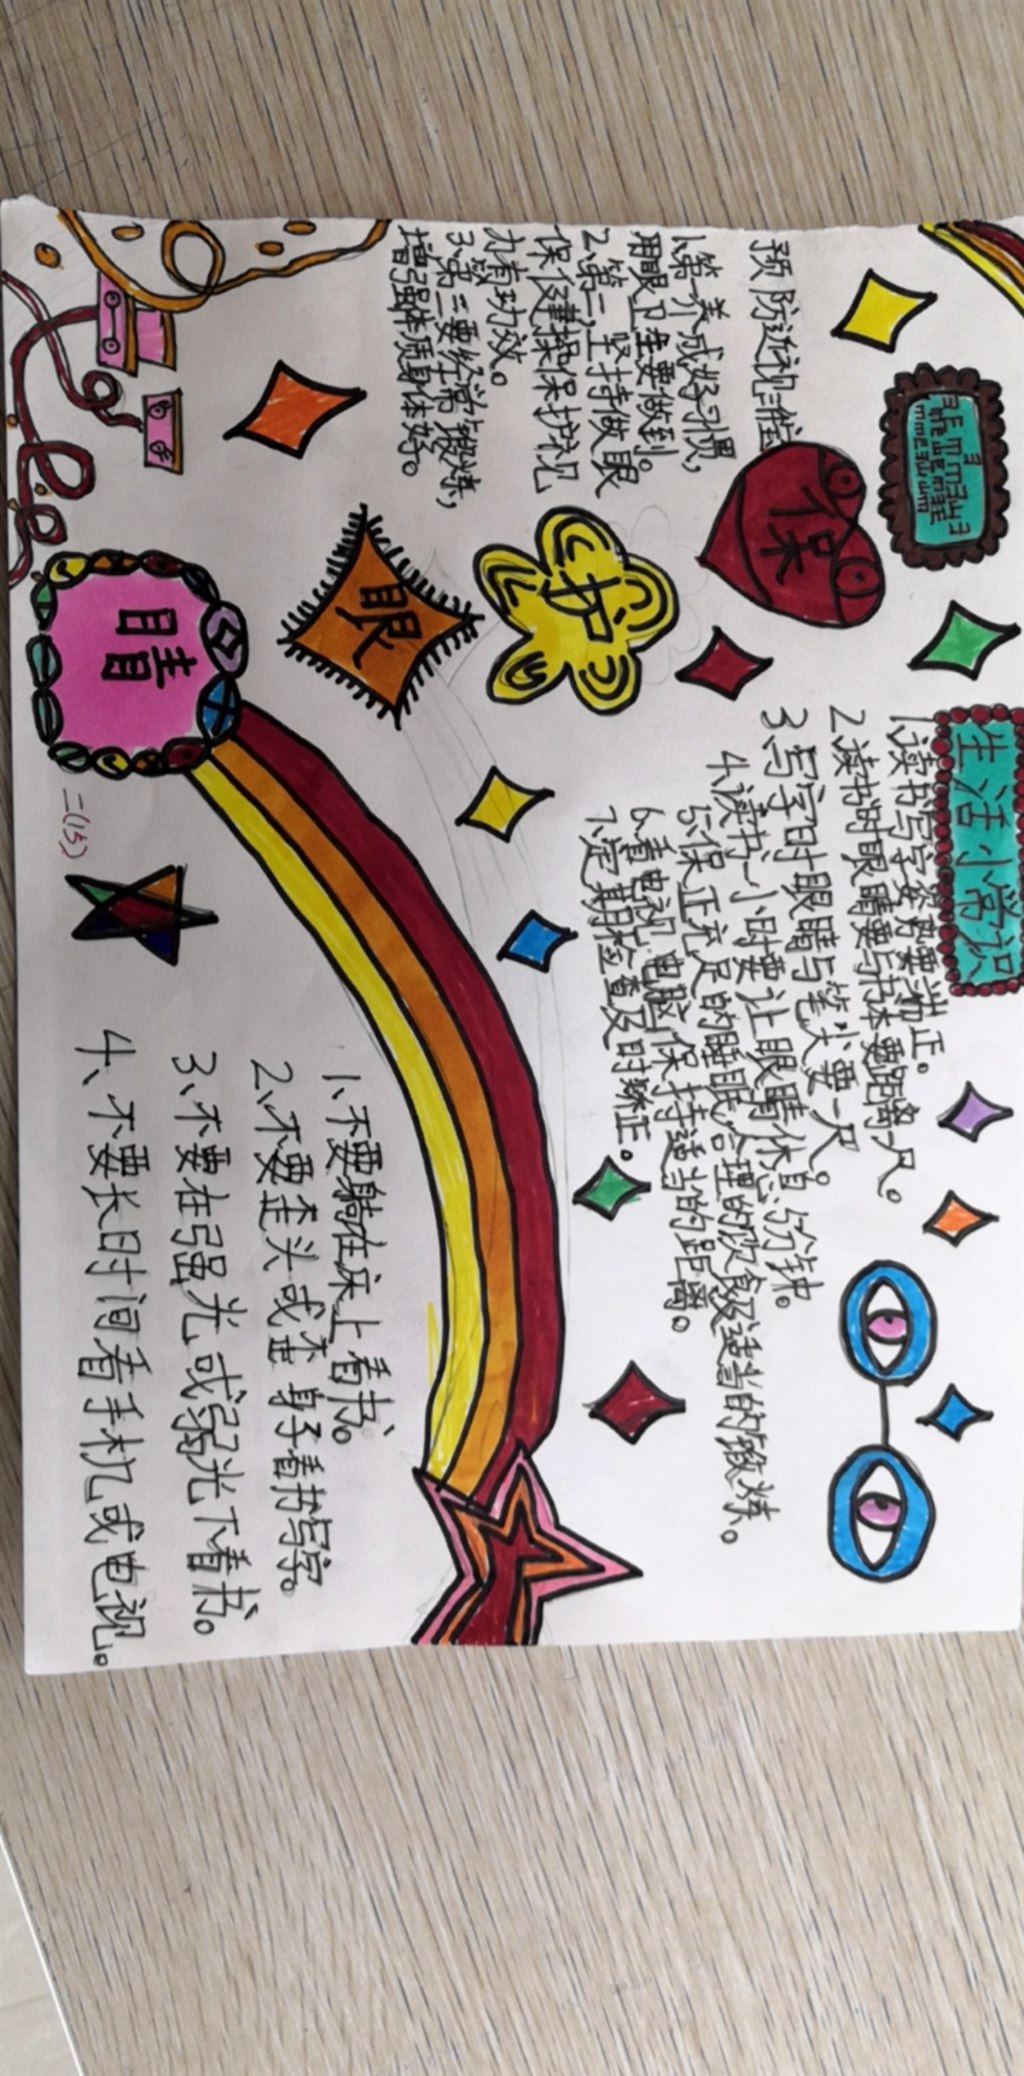 保
护
眼
睛
二(15)
预防近视三准则
1.第一,养成好习惯,
用眼卫生要做到。
2.第二,坚持做眼
保健操保护视
力有功效。
3.第三要经常锻炼,
增强体质身体好。
生活小常识
1.读书写字姿势要端正。
2.读书时眼睛要与书本要距离一尺。
3.写字时眼睛与笔尖要一尺。
4.读书一小时要让眼睛休息10分钟。
5.保正充足的睡眠合理的饮食及适当的锻炼。
6.看电视,电脑保持适当的距离。
7.定期检查及时矫正。
1、不要躺在床上看书。
2、不要歪头或歪身子看书写字。
3、不要在强光或弱光下看书。
4、不要长时间看手机或电视。